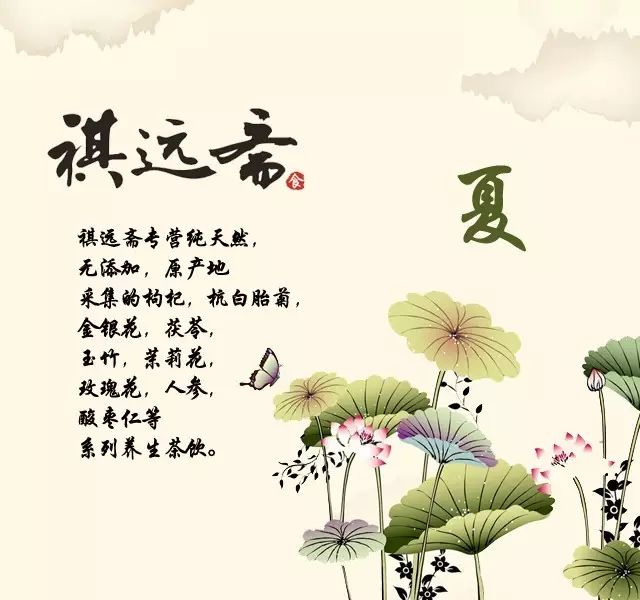 祺远斋
食
夏
祺远斋专营纯天然，
无添加，原产地
采集的枸杞，杭白胎菊，
金银花，茯苓，
玉竹，茉莉花，
玫瑰花，人参，
酸枣仁等
系列养生茶饮。